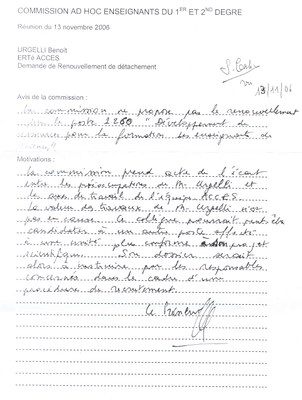 COMMISSION AD HOC ENSEIGNANTS DU 1ER ET 2ND DEGRE
Réunion du 13 novembre 2006
URGELLI Benoît
ERTé ACCES
Demande de Renouvellement de détachement
vu
13/11/06
Avis de la commission :
La commission ne propose pas le renouvellement
sur le poste 1260 "Développement de
ressources pour la formation des enseignants de
Motivations :
La commission prend acte de l'écart
entre les préoccupations de M. Urgelli et
les axes de travail de l'équipe ACCES.
La valeur des travaux de M. Urgelli n'est
pas en cause. Ce collègue pourrait peut-être
candidater à un autre poste affecté
à une unité plus conforme à son projet
scientifique. Son dossier serait
alors à instruire par les responsables
concernés dans le cadre d'une
procédure de recrutement.